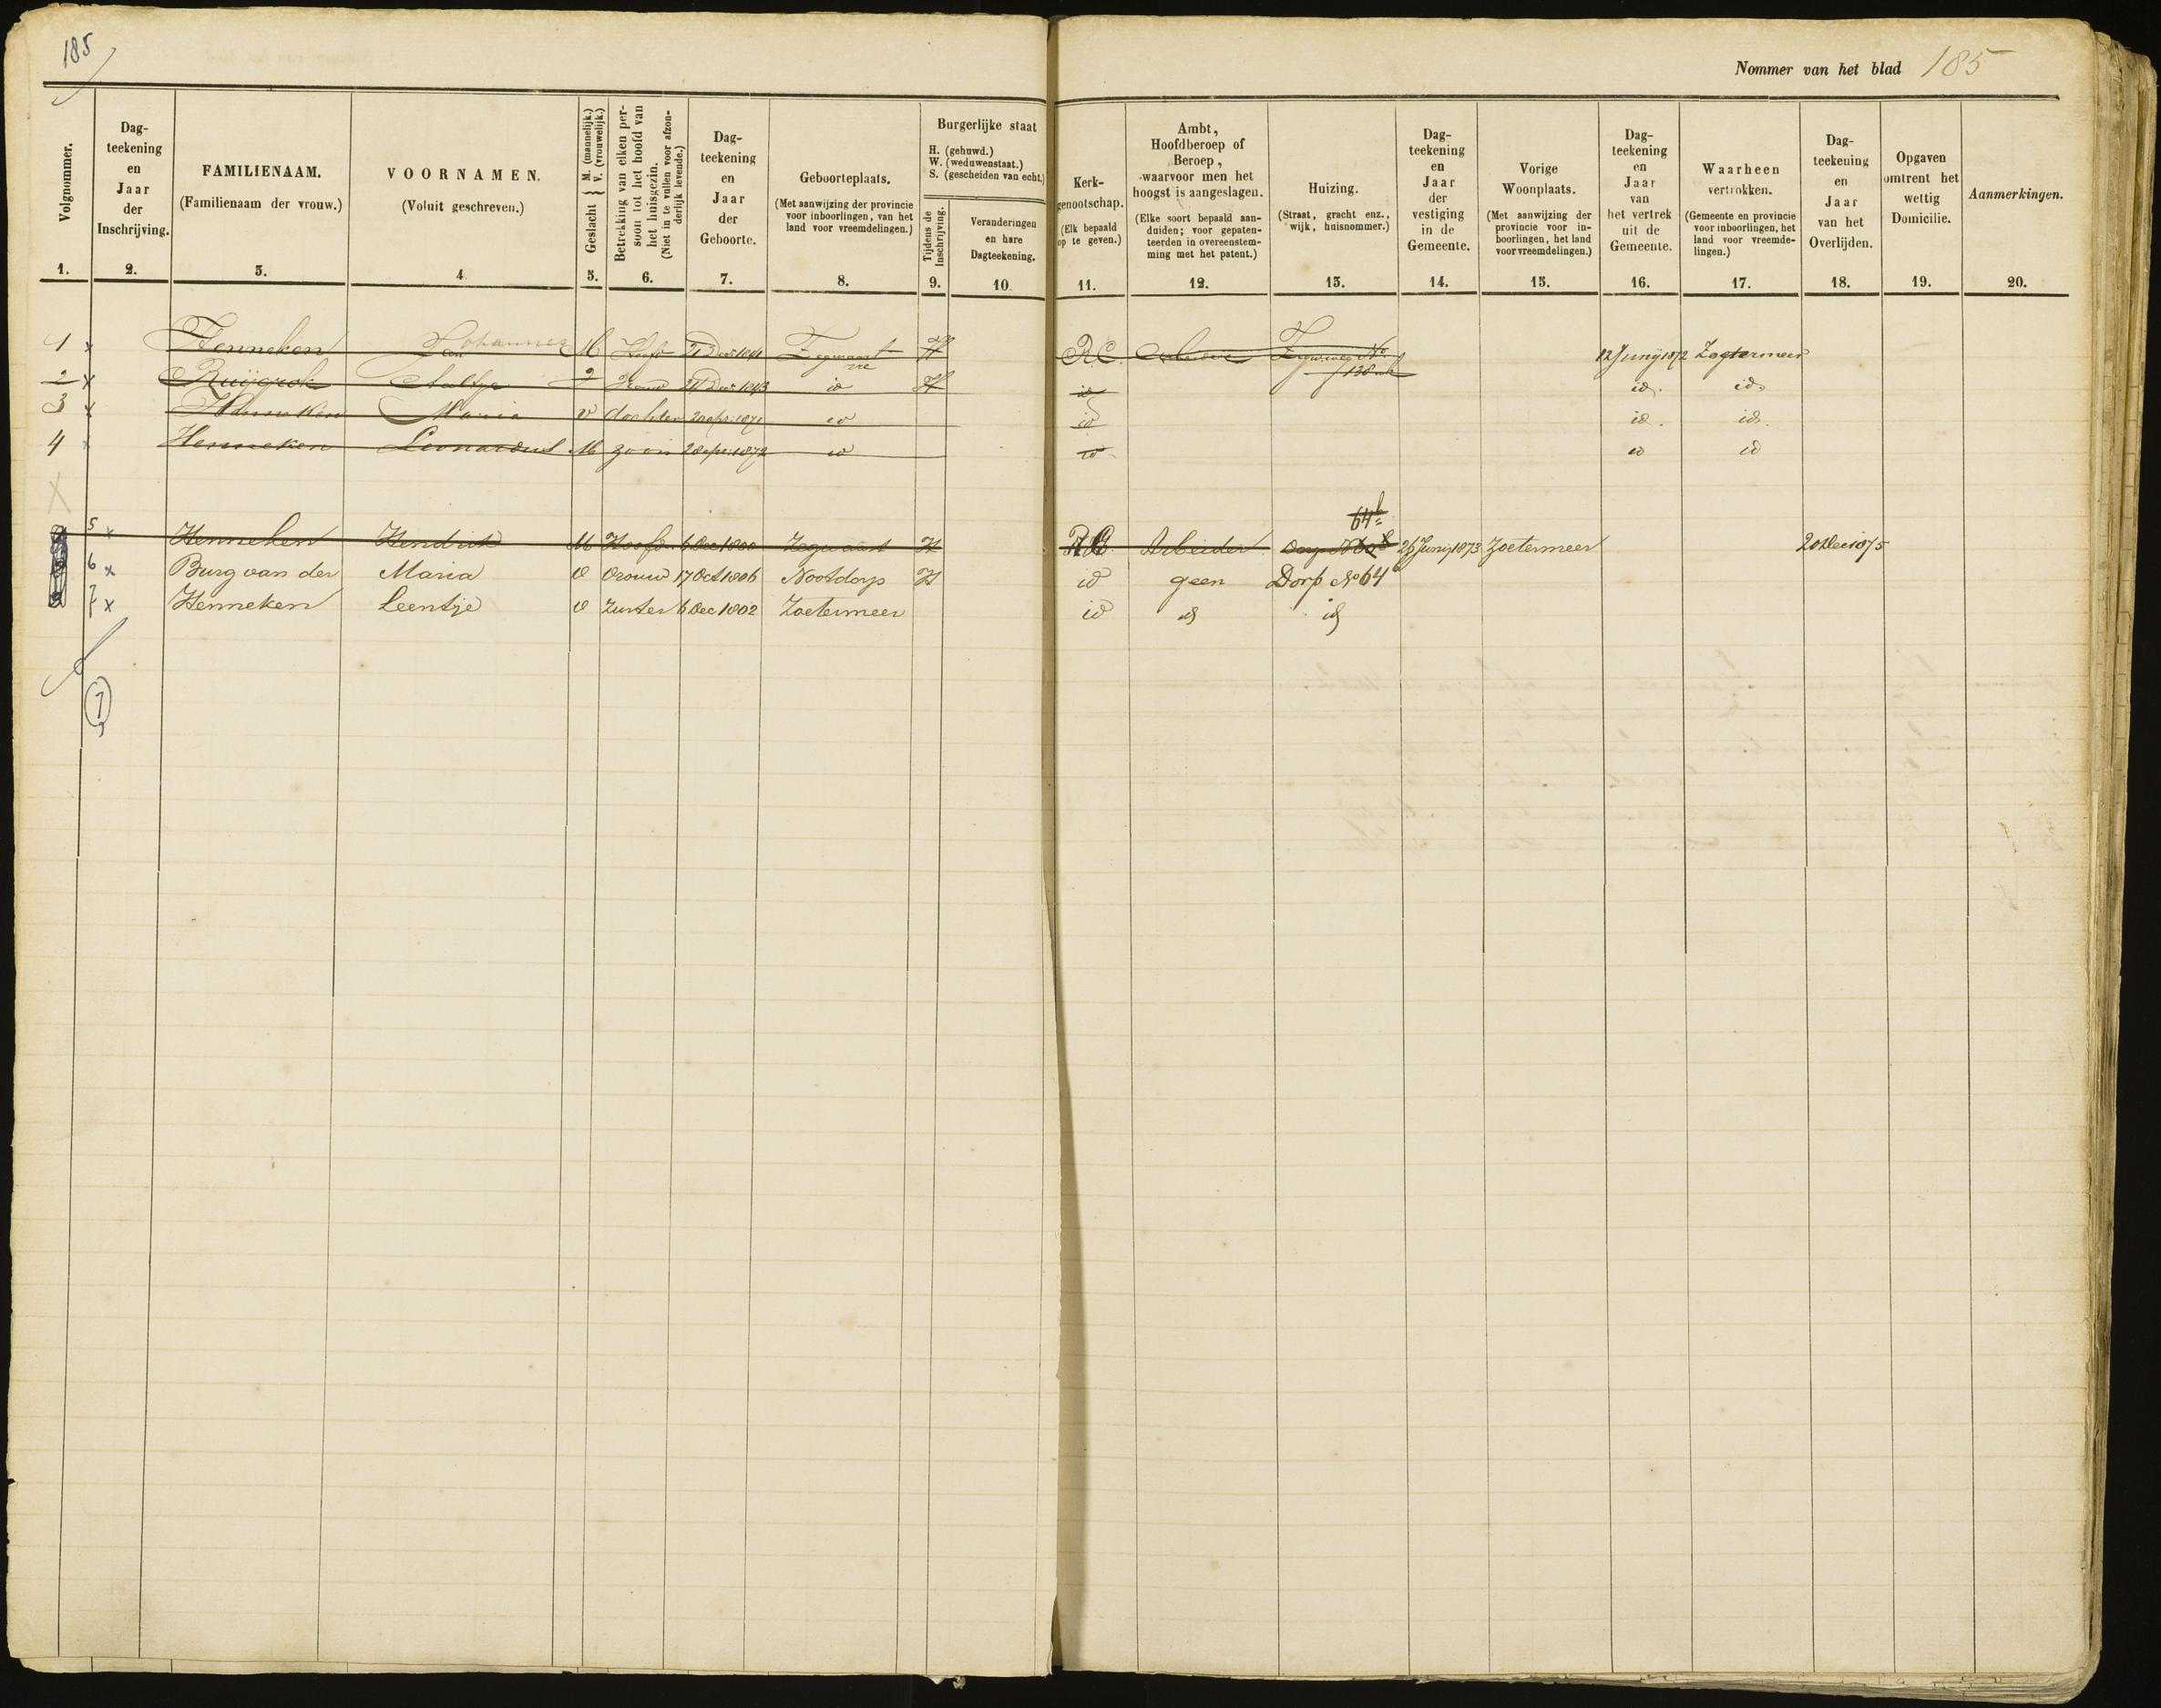 185
Nommer van het blad 185
Volgnommer.
Dag-
teekening
en
Jaar
der
Inschrijving.
FAMILIENAAM.
(Familienaam der vrouw.)
VOORNAMEN.
(Voluit geschreven.)
Geslacht { M. (mannelijk.) V. (vrouwelijk.)
Betrekking van elken per-
soon tot het hoofd van
het huisgezin.
(Niet in te vullen voor afzon-
derlijk levende.)
Dag-
teekening
en
Jaar
der
Geboorte.
Geboorteplaats.
(Met aanwijzing der provincie
voor inboorlingen, van het
land voor vreemdelingen.)
Burgerlijke staat
H. (gehuwd.)
W. (weduwenstaat.)
S. (gescheiden van echt.)
Tijdens de
Inschrijving.
Veranderingen
en hare
Dagteekening.
Kerk-
genootschap.
(Elk bepaald
op te geven.)
Ambt,
Hoofdberoep of
Beroep,
waarvoor men het
hoogst is aangeslagen.
(Elke soort bepaald aan-
duiden; voor gepaten-
teerden in overeenstem-
ming met het patent.)
Huizing.
(Straat, gracht enz.,
wijk, huisnommer.)
Dag-
teekening
en
Jaar
der
vestiging
in de
Gemeente.
Vorige
Woonplaats.
(Met aanwijzing der
provincie voor in-
boorlingen, het land
voor vreemdelingen.)
Dag-
teekening
en
Jaar
van
het vertrek
uit de
Gemeente.
Waarheen
vertrokken.
(Gemeente en provincie
voor inboorlingen, het
land voor vreemde-
lingen.)
Dag-
teekening
en
Jaar
van het
Overlijden.
Opgaven
omtrent het
wettig
Domicilie.
Aanmerkingen.
1. 2. 3. 4 5. 6. 7. 8. 9. 10 11. 12. 13. 14. 15. 16. 17. 18. 19. 20.
1 x Henneken Jan Johannes M Hoofd 21 Dec 1841 Zegwaart H RC Arbeider Zegwweg No 12 Junij 1872 Zoetermeer
138
2 x Ruijgrok Aaltje Vrouw 21 Dec 1843 id H id id. id.
3 x Henneken Maria v dochter 20 apr. 1871 id id id. id.
4 x Henneken Leonardus M zoon 28 apr. 1872 id id id id
64b
5 x Henneken Hendrik M Hoofd 6 Dec 1800 Zegwaart H RC Arbeider Dorp 25 Junij 1873 Zoetermeer 20 Dec 1875
6 x Burg van der Maria V Vrouw 17 Oct 1806 Nootdorp H id geen Dorp No 64b
7 x Henneken Leentje V Zuster 6 Dec 1802 Zoetermeer id id id
7